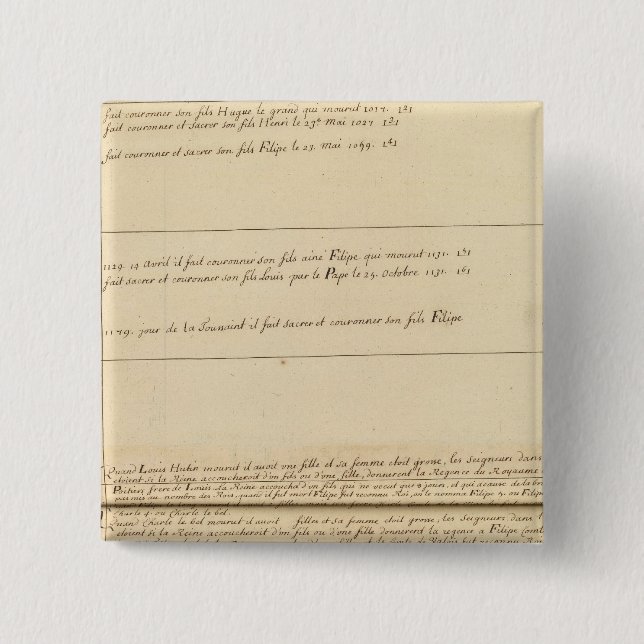 fait couronner son fils Hugue le grand qui mourut 1017.
fait couronner et sacrer son fils Henri le 23e Mai 1027
fait couronner et sacrer son fils Filipe le 23. Mai 1059.
1129. 14 Avril il fait couronner son fils aîné Filipe qui mourut 1131.
fait sacrer et couronner son fils Louis par le Pape le 25. Octobre 1131.
1179. jour de la Toussaint il fait sacrer et couronner son fils Filipe
Quand Louis Hutin mourut il avoit vne fille et sa femme étoit grosse, les Seigneurs dans
étoient si la Reine accoucheroit d'vn fils ou d'vne fille, donnerent la Regence du Royaume
Poitiers frere de Louis la Reine accoucha d'vn fils qui ne vecut que 8 jours, et qui acause de
pas mis au nombre des Rois, quand il fut mort Filipe fut reconnu Roi, on le nomma Filipe 5. ou Filipe
Charle 4. ou Charle le bel.
Quand Charle le bel mourut il avoit filles et sa femme étoit grosse, les Seigneurs dans
étoient si la Reine accoucheroit d'vn fils ou d'vne fille donnerent la regence a Filipe